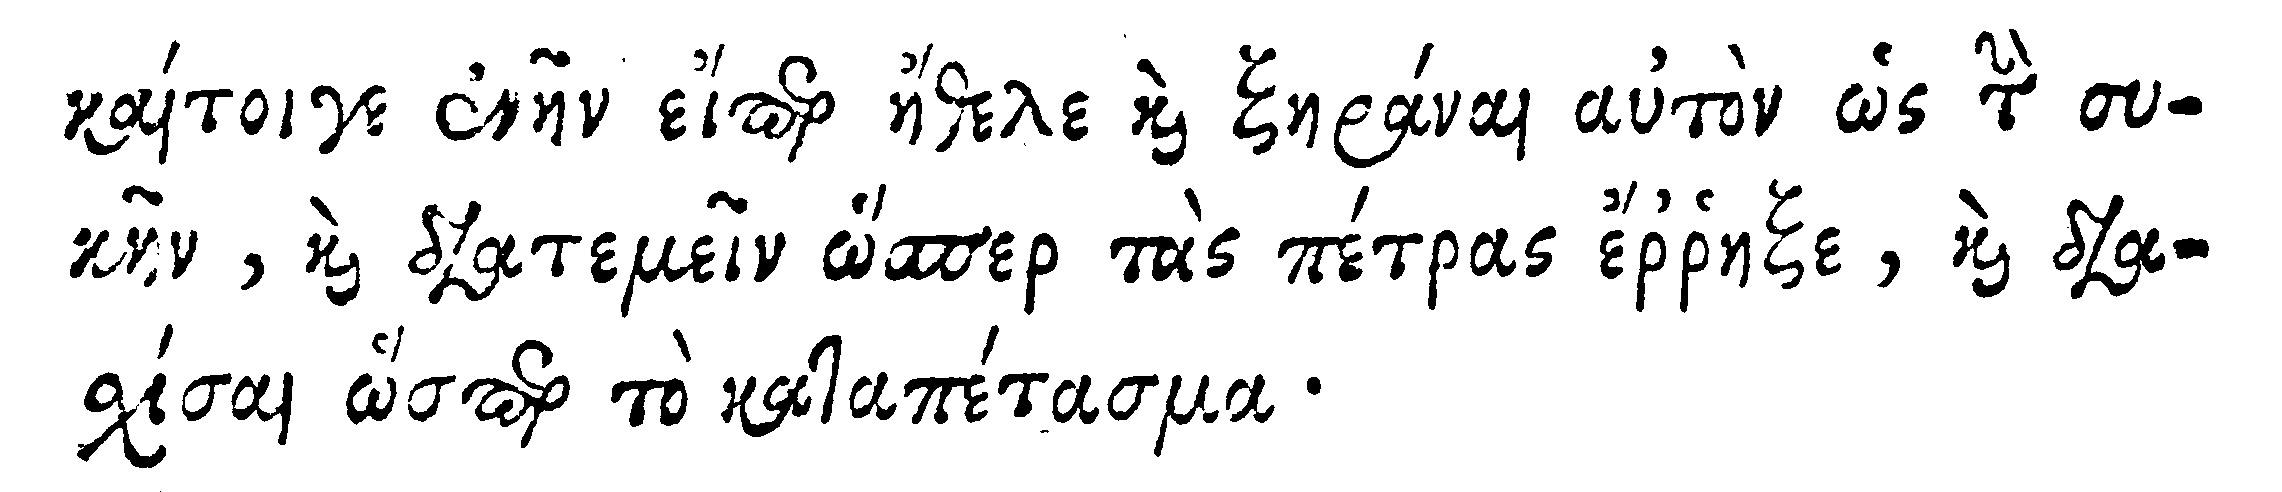 καίτοιγε ἐνῆν εἴπερ ἤθελε καὶ ξηράναι αὐτὸν ὡς τὴν συ-
κῆν, καὶ διατεμεῖν ὥσπερ τὰς πέτρας ἔῤῥηξε, καὶ δια-
σχίσαι ὥσπερ τὸ καταπέτασμα.